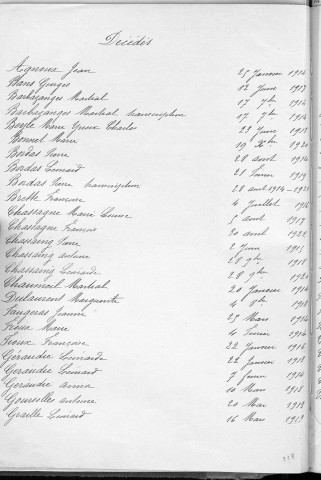 Décédés
Agnoux Jean 25 Janvier 1914
Bans Georges 12 Juin 1917
Barbazanges Martial 17 7bre 1914
Barbazanges Martial transcription 17 7bre 1914
Boyle Marie Yreux Charles 29 Juin 1918
Bonnet Marie 19 Xbre 1920
Bordas Pierre 28 aout 1914
Bordas Léonard 21 Février 1919
Bordas Pierre transcription 28 aout 1914
Brette Françoise 4 Juillet 1916
Chassagne Marie Louise 5 avril 1917
Chassagne François 30 avril 1922
Chassaing Pierre 2 Juin 1915
Chassaing Antoine 28 9bre 1918
Chassaing Léonarde 28 9bre 1920
Chaumeil Martial 20 Janvier 1914
Dulaurent Marguerite 4 8bre 1918
Faugeras Jeanne 25 Mars 1914
Marie 4 Février 1914
Françoise 22 Janvier 1916
Géraudie Léonarde 22 Janvier 1918
Géraudie Léonard 7 Janvier 1914
Géraudie Anna 10 Mars 1918
Gourselles Antoine 20 Mai 1919
Graille Léonard 16 Mars 1917